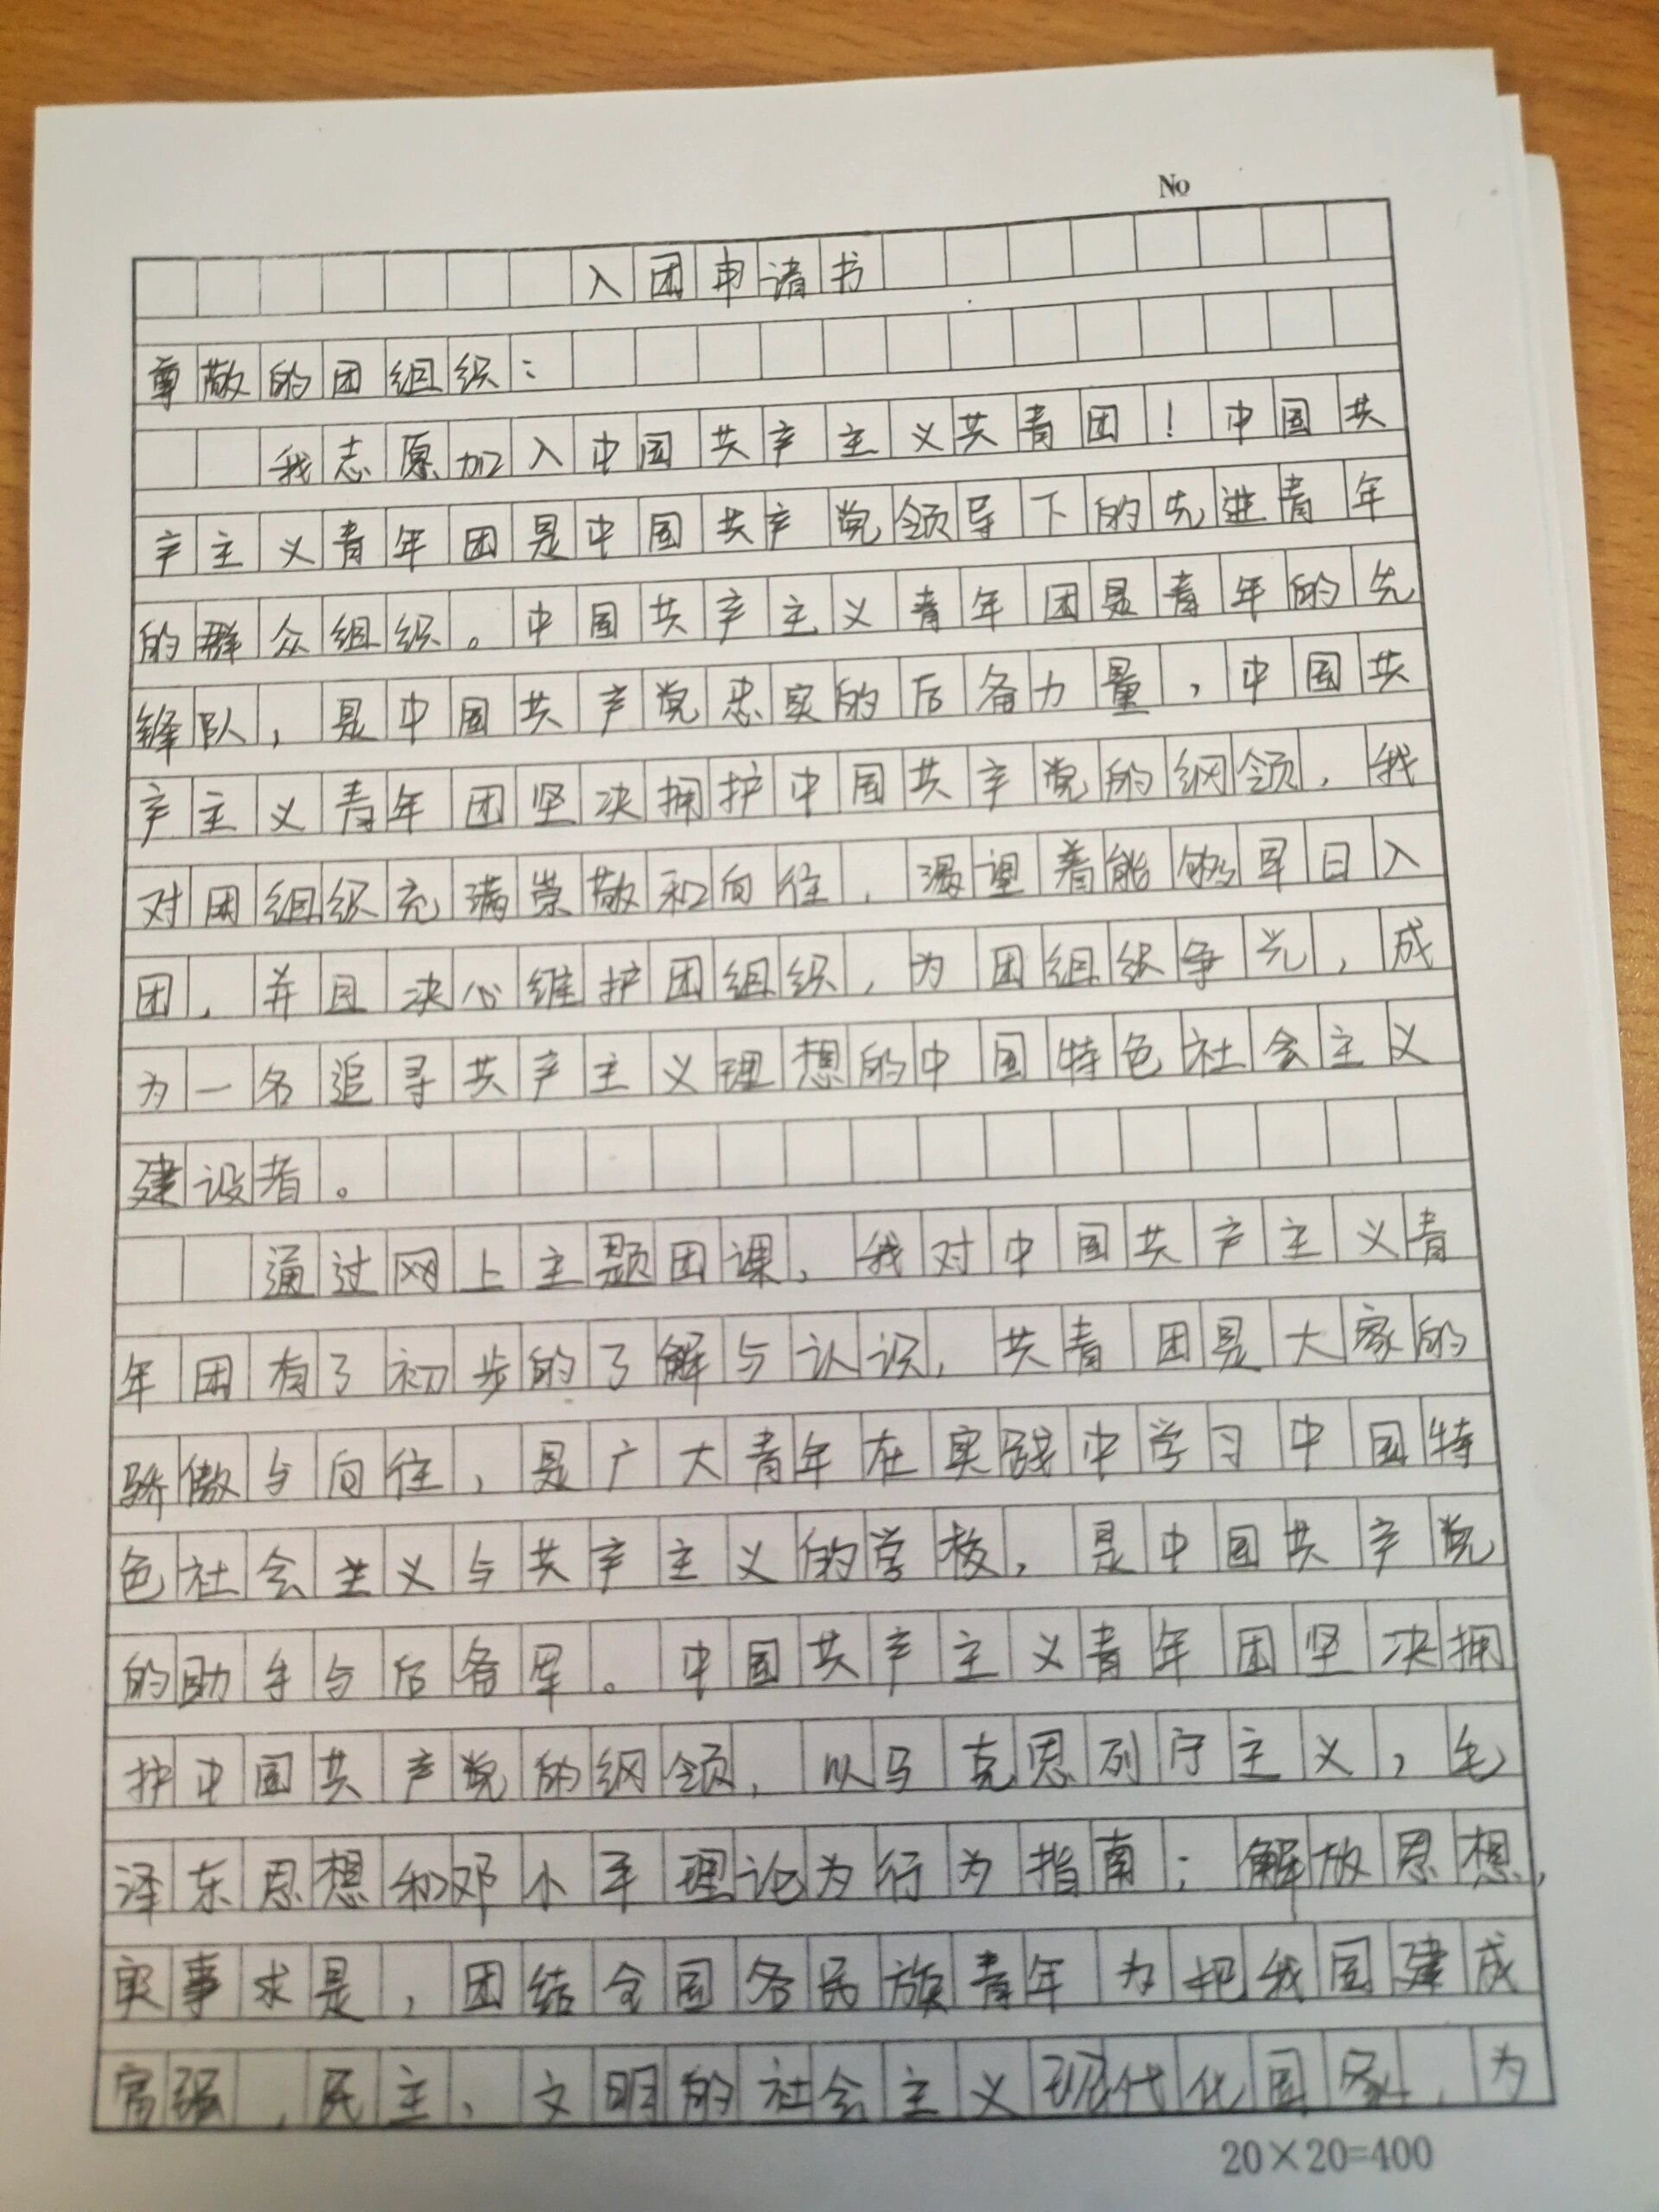 No
入团申请书
尊敬的团组织：
我志愿加入中国共产主义共青团！中国共
产主义青年团是中国共产党领导下的先进青年
的群众组织。中国共产主义青年团是青年的先
锋队，是中国共产党忠实的后备力量，中国共
产主义青年团坚决拥护中国共产党的纲领，我
对团组织充满崇敬和向往，渴望着能够早日入
团，并且决心维护团组织，为团组织争光，成
为一名追寻共产主义理想的中国特色社会主义
建设者。
通过网上主题团课，我对中国共产主义青
年团有了初步的了解与认识，共青团是大家的
骄傲与向往，是广大青年在实践中学习中国特
色社会主义与共产主义的学校，是中国共产党
的助手与后备军。中国共产主义青年团坚决拥
护中国共产党的纲领，以马克思列宁主义，毛
泽东思想和邓小平理论为行为指南；解放思想，
实事求是，团结全国各民族青年为把我国建成
富强，民主、文明的社会主义现代化国家，为
20×20=400